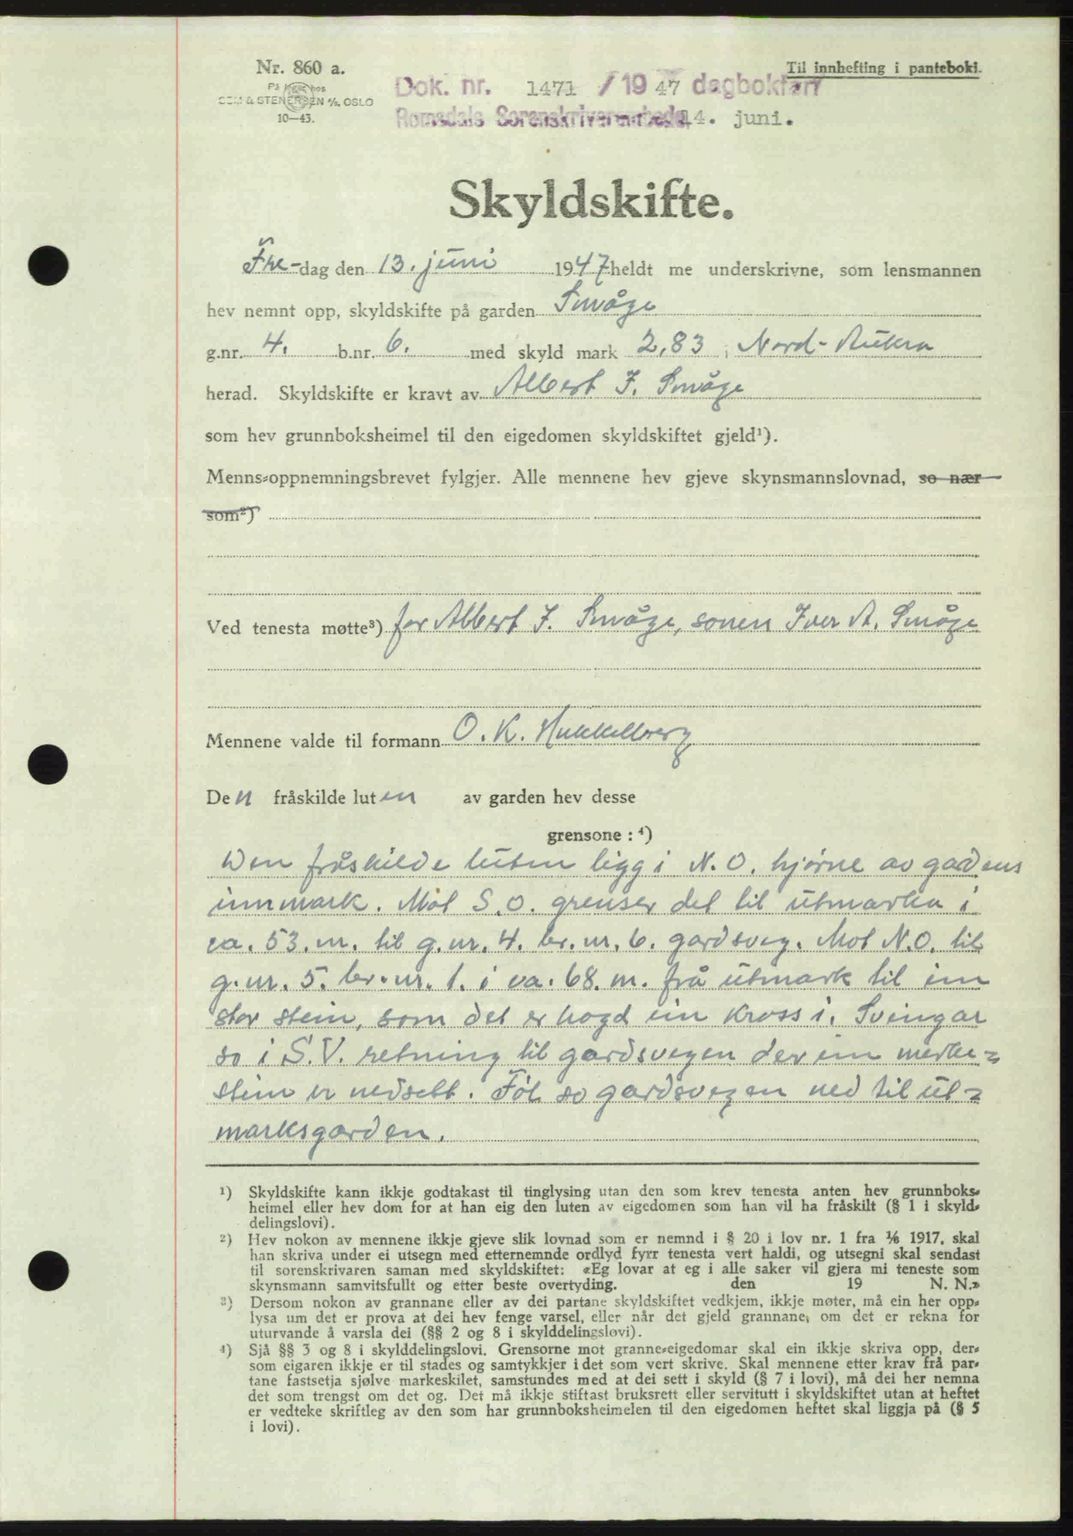 Nr. 860 a.
Til innhefting i pantebok.
På lager hos
SEM & STENERSEN A/S, OSLO
10—43.
Dok. nr. 1471 / 19 47 dagbokført
Romsdals Sorenskriverembede 14. juni.
Skyldskifte.
Fre-dag den 13. juni 1947 heldt me underskrivne, som lensmannen
hev nemnt opp, skyldskifte på garden Småge
g.nr. 4. b.nr. 6. med skyld mark 2,83 i Nord-Aukra
herad. Skyldskifte er kravt av Albert I. Småge
som hev grunnboksheimel til den eigedomen skyldskiftet gjeld¹).
Menns-oppnemningsbrevet fylgjer. Alle mennene hev gjeve skynsmannslovnad, so nær
som²)
Ved tenesta møtte³) for Albert I. Småge, sonen Iver A. Småge
Mennene valde til formann O. K. Hukkelberg
Den fråskilde luten av garden hev desse
grensone : ⁴)
Den fråskilde luten ligg i N.O. hjørne av gardens
innmark. Mot S.O. grenser det til utmarka i
ca. 53. m. til g.nr. 4. br.nr. 6. gardsveg. Mot N.O. til
g.nr. 5. br.nr. 1. i ca. 68. m. frå utmark til ein
stor stein, som det er hogd ein kross i. Svingar
so i S.V. retning til gardsvegen der ein merke-
stein er nedsett. Føl so gardsvegen ned til ut-
marksgarden.
¹) Skyldskifte kann ikkje godtakast til tinglysing utan den som krev tenesta anten hev grunnboks-
heimel eller hev dom for at han eig den luten av eigedomen som han vil ha fråskilt (§ 1 i skyld-
delingslovi).
²) Hev nokon av mennene ikkje gjeve slik lovnad som er nemnd i § 20 i lov nr. 1 fra 1/6 1917, skal
han skriva under ei utsegn med etternemnde ordlyd fyrr tenesta vert haldi, og utsegni skal sendast
til sorenskrivaren saman med skyldskiftet: «Eg lovar at eg i alle saker vil gjera mi teneste som
skynsmann samvitsfullt og etter beste overtyding. den 19 N. N.»
³) Dersom nokon av grannane eller av dei partane skyldskiftet vedkjem, ikkje møter, må ein her opp-
lysa um det er prova at dei hev fenge varsel, eller når det gjeld grannane, om det er rekna for
uturvande å varsla dei (§§ 2 og 8 i skylddelingslovi).
⁴) Sjå §§ 3 og 8 i skylddelingslovi. Grensorne mot granne-eigedomar skal ein ikkje skriva opp, der-
som eigaren ikkje er til stades og samtykkjer i det som vert skrive. Skal mennene etter krav frå par-
tane fastsetja sjølve markeskilet, samstundes med at dei sett i skyld (§ 7 i lovi), må dei her nemna
det som trengst om det og. Det må ikkje stiftast bruksrett eller servitutt i skyldskiftet utan at heftet
er vedteke skriftleg av den som har grunnboksheimelen til den eigedomen heftet skal liggja på (§ 5
i lovi).